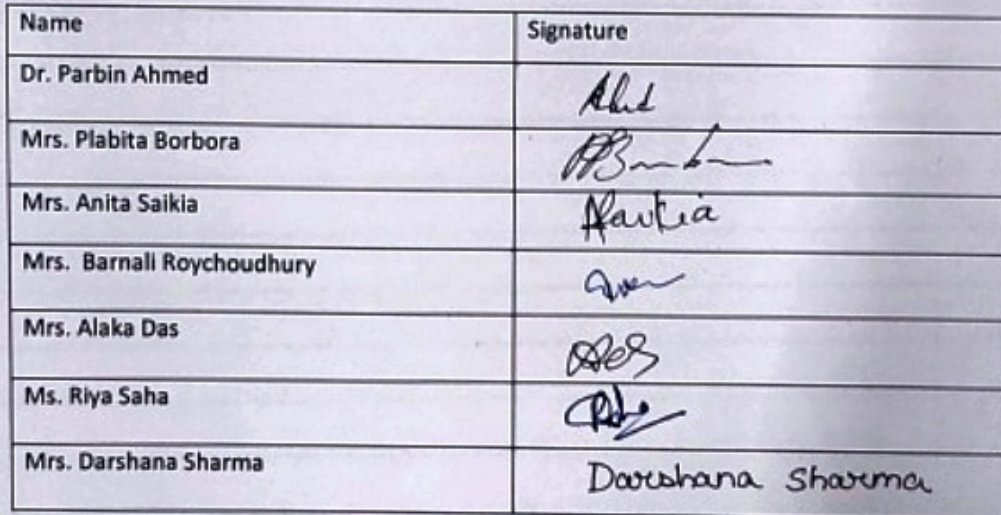 Name Signature
Dr. Parbin Ahmed
Mrs. Plabita Borbora
Mrs. Anita Saikia
Mrs. Barnali Roychoudhury
Mrs. Alaka Das
Ms. Riya Saha
Mrs. Darshana Sharma Darshana Sharma